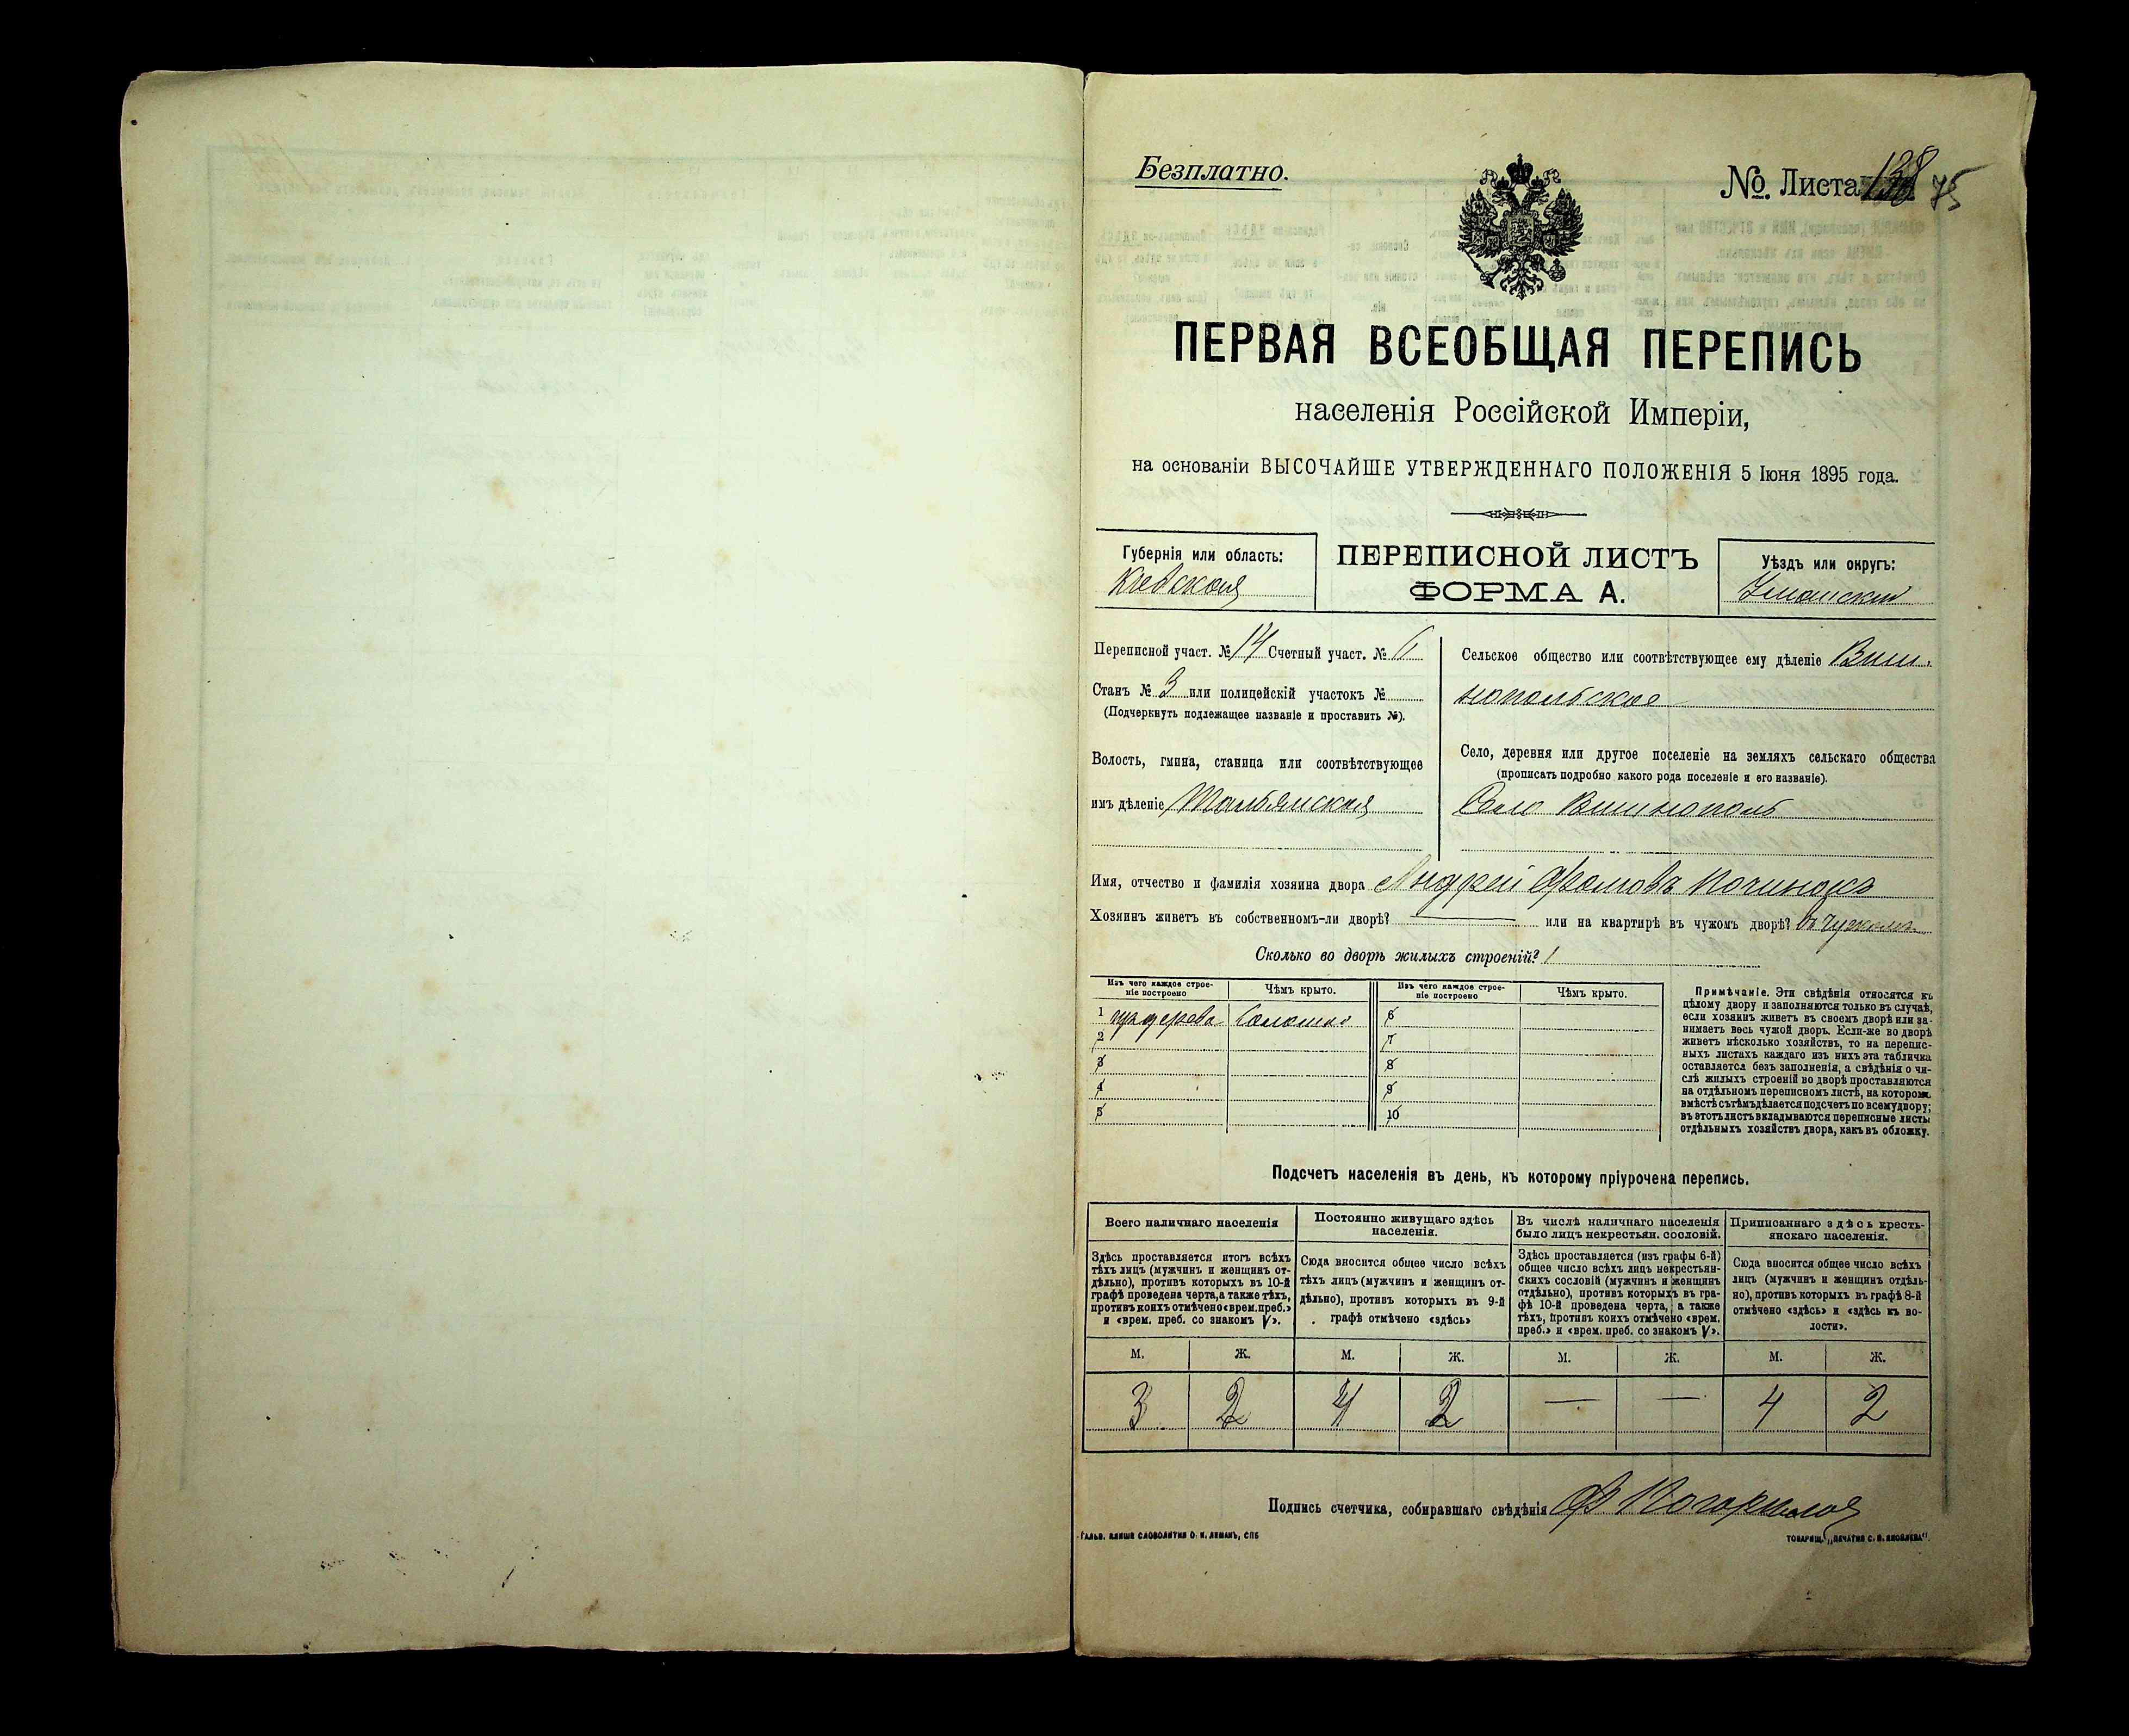 Безплатно.
№ Листа 138 75
ПЕРВАЯ ВСЕОБЩАЯ ПЕРЕПИСЬ
населенія Россійской Имперіи,
на основаніи ВЫСОЧАЙШЕ УТВЕРЖДЕННАГО ПОЛОЖЕНІЯ 5 Іюня 1895 года.
Губернія или область:
Кіевская
ПЕРЕПИСНОЙ ЛИСТЪ
ФОРМА А.
Уѣздъ или округъ:
Уманскій
Переписной участ. № 14 Счетный участ. № 6
Станъ № 3 или полицейскій участокъ №
(Подчеркнуть подлежащее названіе и проставить №).
Волость, гмина, станица или соотвѣтствующее
имъ дѣленіе Тальянская
Сельское общество или соотвѣтствующее ему дѣленіе Виш-
нопольское
Село, деревня или другое поселеніе на земляхъ сельскаго общества
(прописать подробно какого рода поселеніе и его названіе).
Село Вишнополь
Имя, отчество и фамилія хозяина двора Андрей Фомовъ Починокъ
Хозяинъ живетъ въ собственномъ-ли дворѣ? — или на квартирѣ въ чужомъ дворѣ? въ чужомъ
Сколько во дворѣ жилыхъ строеній? 1
Изъ чего каждое строе-
ніе построено
Чѣмъ крыто.
Изъ чего каждое строе-
ніе построено
Чѣмъ крыто.
1 изъ дерева Соломой 6
2 7
3 8
4 9
5 10
Примѣчаніе. Эти свѣдѣнія относятся къ
цѣлому двору и заполняются только въ случаѣ,
если хозяинъ живетъ въ своемъ дворѣ или за-
нимаетъ весь чужой дворъ. Если-же во дворѣ
живетъ нѣсколько хозяйствъ, то на перепис-
ныхъ листахъ каждаго изъ нихъ эта табличка
оставляется безъ заполненія, а свѣдѣнія о чи-
слѣ жилыхъ строеній во дворѣ проставляются
на отдѣльномъ переписномъ листѣ, на которомъ
вмѣстѣ съ тѣмъ дѣлается подсчетъ по всему двору;
въ этотъ листъ вкладываются переписные листы
отдѣльныхъ хозяйствъ двора, какъ въ обложку.
Подсчетъ населенія въ день, къ которому пріурочена перепись.
Всего наличнаго населенія
Здѣсь проставляется итогъ всѣхъ
тѣхъ лицъ (мужчинъ и женщинъ от-
дѣльно), противъ которыхъ въ 10-й
графѣ проведена черта, а также тѣхъ,
противъ коихъ отмѣчено «врем. преб.»
и «врем. преб. со знакомъ V».
Постоянно живущаго здѣсь
населенія.
Сюда вносится общее число всѣхъ
тѣхъ лицъ (мужчинъ и женщинъ от-
дѣльно), противъ которыхъ въ 9-й
графѣ отмѣчено «здѣсь»
Въ числѣ наличнаго населенія
было лицъ некрестьян. сословій.
Здѣсь проставляется (изъ графы 6-й)
общее число всѣхъ лицъ некрестьян-
скихъ сословій (мужчинъ и женщинъ
отдѣльно), противъ которыхъ въ гра-
фѣ 10-й проведена черта, а также
тѣхъ, противъ коихъ отмѣчено «врем.
преб.» и «врем. преб. со знакомъ V».
Приписаннаго здѣсь кресть-
янскаго населенія.
Сюда вносится общее число всѣхъ
лицъ (мужчинъ и женщинъ отдѣль-
но), противъ которыхъ въ графѣ 8-й
отмѣчено «здѣсь» и «здѣсь къ во-
лости».
М. Ж. М. Ж. М. Ж. М. Ж.
3 2 4 2 — — 4 2
Подпись счетчика, собиравшаго свѣдѣнія
ГАЛЬВ. КЛИШЕ СЛОВОЛИТНИ О. И. ЛЕМАНЪ, СПБ
ТОВАРИЩ. „ПЕЧАТНЯ С. П. ЯКОВЛЕВА"